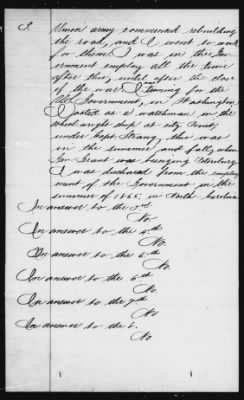 3.
Union army commenced rebuilding
the road, and I went to work
for them. I was in the Gov-
ernment employ all the time
after this, until after the close
of the war. I
Government, in Washington
I acted as a watchman in the
wheelwright shop at City Point,
under Capt. Strang, this was
in the summer, and fall, when
Gen Grant was besieging Petersburg.
I was discharged from the employ-
ment of the Government in the
summer of 1865, in North Carolina
In answer to the 3rd
No.
In answer to the 4th
No.
In answer to the 5th
No.
In answer to the 6th
No.
In answer to the 7th
No
In answer to the 8.
No